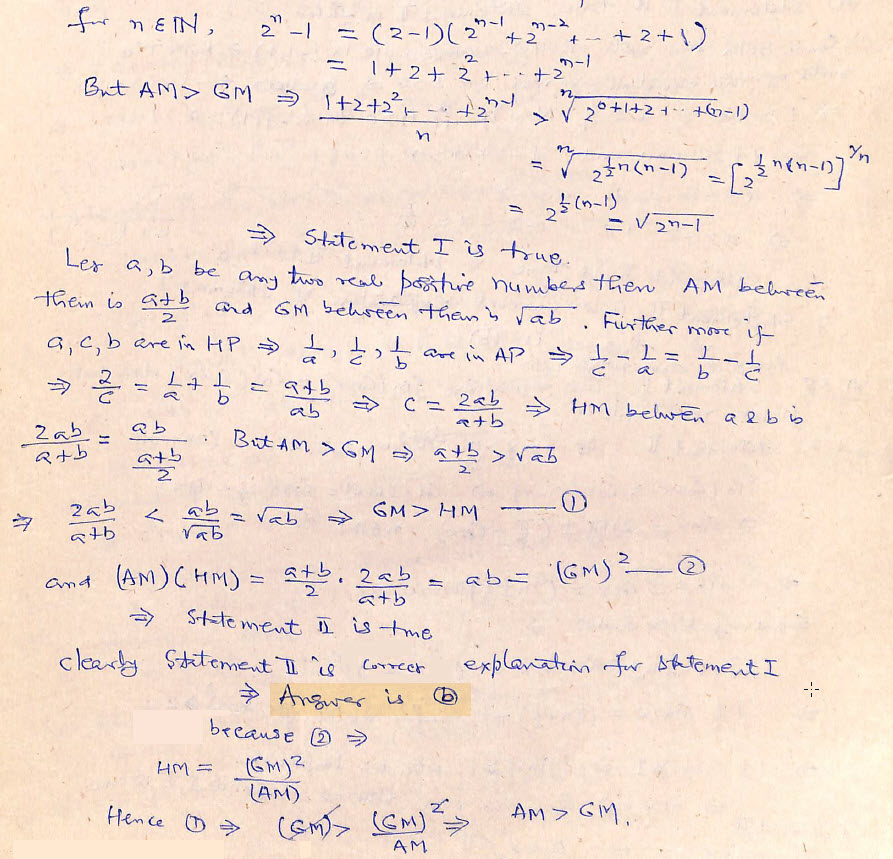 for n ∈ IN, 2^n - 1 = (2-1)(2^{n-1} + 2^{n-2} + -- + 2 + 1)
= 1 + 2 + 2^2 + -- + 2^{n-1}
But AM > GM ⇒ (1+2+2^2+ -- +2^{n-1})/n > ⁿ√(2^{0+1+2+ -- +(n-1)})
= ⁿ√(2^{½n(n-1)}) = [2^{½n(n-1)}]^{1/n}
= 2^{½(n-1)} = √(2^{n-1})
⇒ Statement I is true.
Let a, b be any two real positive numbers then AM between
them is (a+b)/2 and GM between them is √ab . Further more if
a, c, b are in HP ⇒ 1/a, 1/c, 1/b are in AP ⇒ 1/c - 1/a = 1/b - 1/c
⇒ 2/c = 1/a + 1/b = (a+b)/ab ⇒ c = 2ab/(a+b) ⇒ HM between a & b is
2ab/(a+b) = ab/((a+b)/2) . But AM > GM ⇒ (a+b)/2 > √ab
⇒ 2ab/(a+b) < ab/√ab = √ab ⇒ GM > HM —— ①
and (AM)(HM) = (a+b)/2 . 2ab/(a+b) = ab = (GM)^2 —— ②
⇒ Statement II is true
clearly Statement II is correct explanation for statement I
⇒ Answer is ⓑ
because ② ⇒
HM = (GM)^2/(AM)
Hence ① ⇒ (GM) > (GM)^2/AM ⇒ AM > GM.